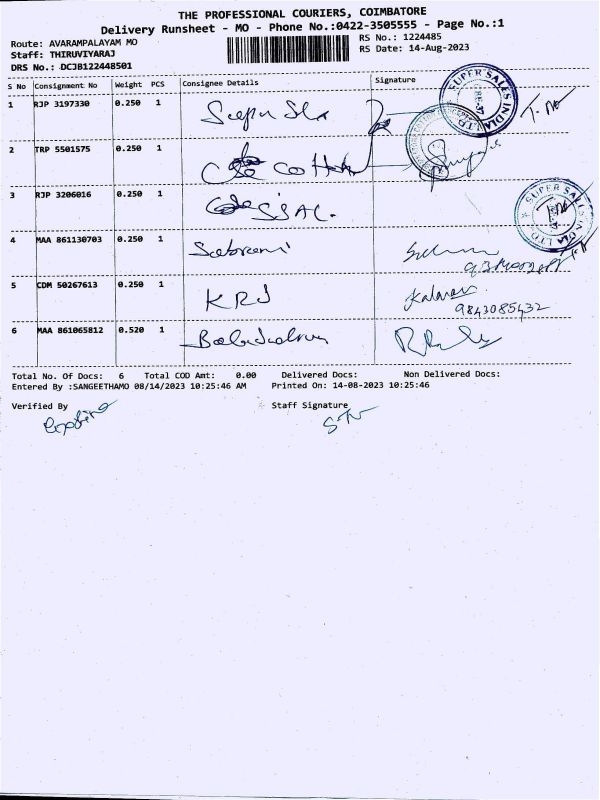 THE PROFESSIONAL COURIERS, COIMBATORE
Delivery Runsheet - MO - Phone No.:0422-3505555 - Page No.:1
Route: AVARAMPALAYAM MO
RS No.: 1224485
Staff: THIRUVIYARAJ
RS Date: 14-Aug-2023
DRS No.: DCJB122448501
S No Consignment No Weight PCS Consignee Details Signature
1 RJP 3197330 0.250 1
SUPER SALES INDIA LTD
2 TRP 5501575 0.250 1
3 RJP 3206016 0.250 1 SSAC.
SUPER SALES INDIA LTD
4 MAA 861130703 0.250 1
5 CDM 50267613 0.250 1 KRJ
9843085432
6 MAA 861065812 0.520 1
Total No. Of Docs: 6 Total COD Amt: 0.00 Delivered Docs: Non Delivered Docs:
Entered By :SANGEETHAMO 08/14/2023 10:25:46 AM Printed On: 14-08-2023 10:25:46
Verified By Staff Signature